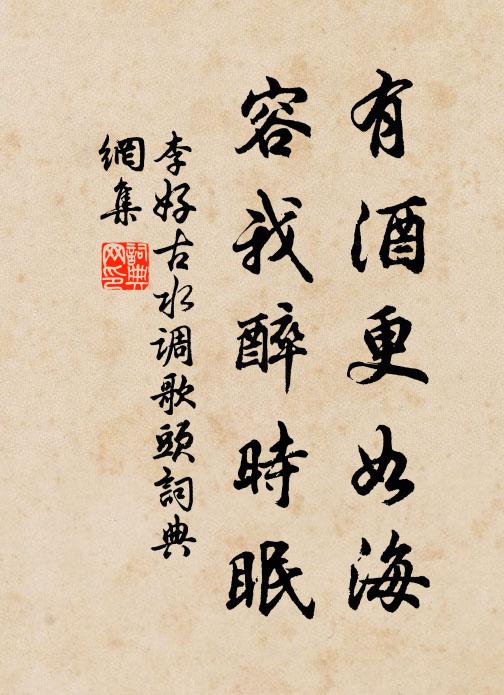 有酒更如海
容我醉時眠
李好古水调歌頭詞典
網集
詞典
网印